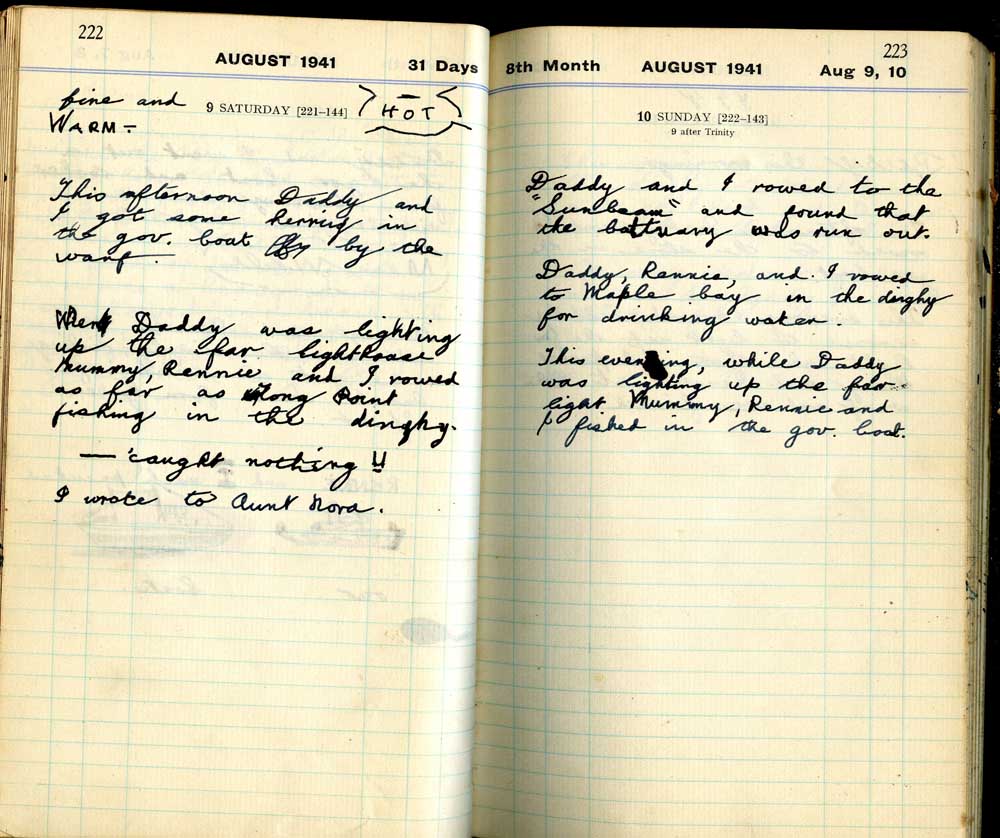 222
AUGUST 1941 31 Days
fine and
WARM-
9 SATURDAY [221–144]
HOT
This afternoon Daddy and
I got some herrig in
the gov. boat by by the
warf.
When Daddy was lighting
up the far lighthouse
Mummy, Rennie and I rowed
as far as long Point
fishing in the dinghy.
— caught nothing !!
I wrote to Aunt Nora.
223
8th Month AUGUST 1941 Aug 9, 10
10 SUNDAY [222–143]
9 after Trinity
Daddy and I rowed to the
"Sunbeam" and found that
the was run out.
Daddy, Rennie, and I rowed
to Maple bay in the dinghy
for drinking water.
This evening, while Daddy
was lighting up the far
light Mummy, Rennie and
I fished in the gov. boat.